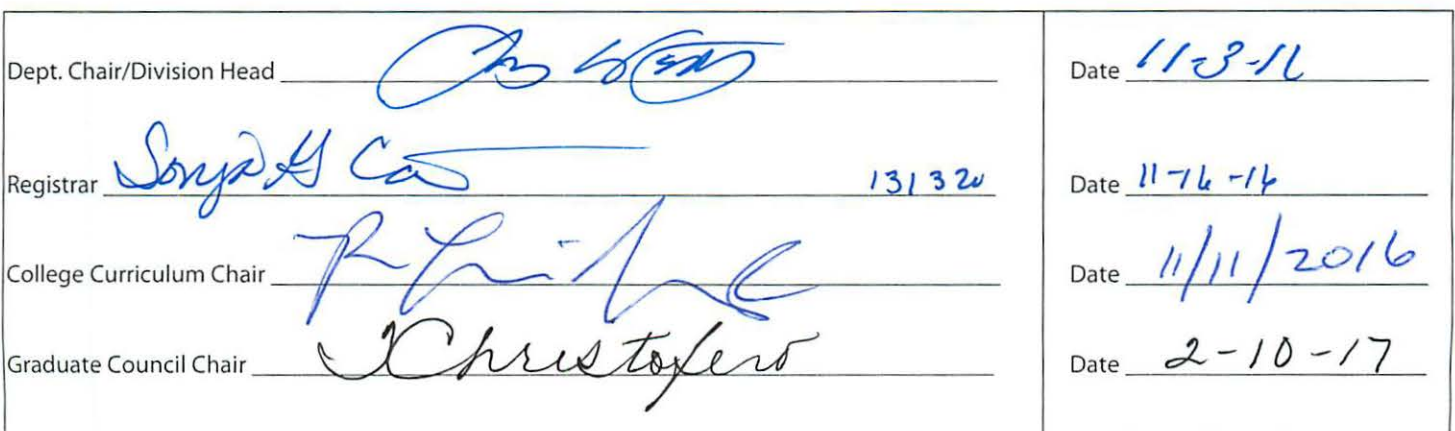 Dept. Chair/Division Head Date 11-3-16
Registrar Sonja G 131320 Date 11-16-16
College Curriculum Chair Date 11/11/2016
Graduate Council Chair Christofero Date 2-10-17